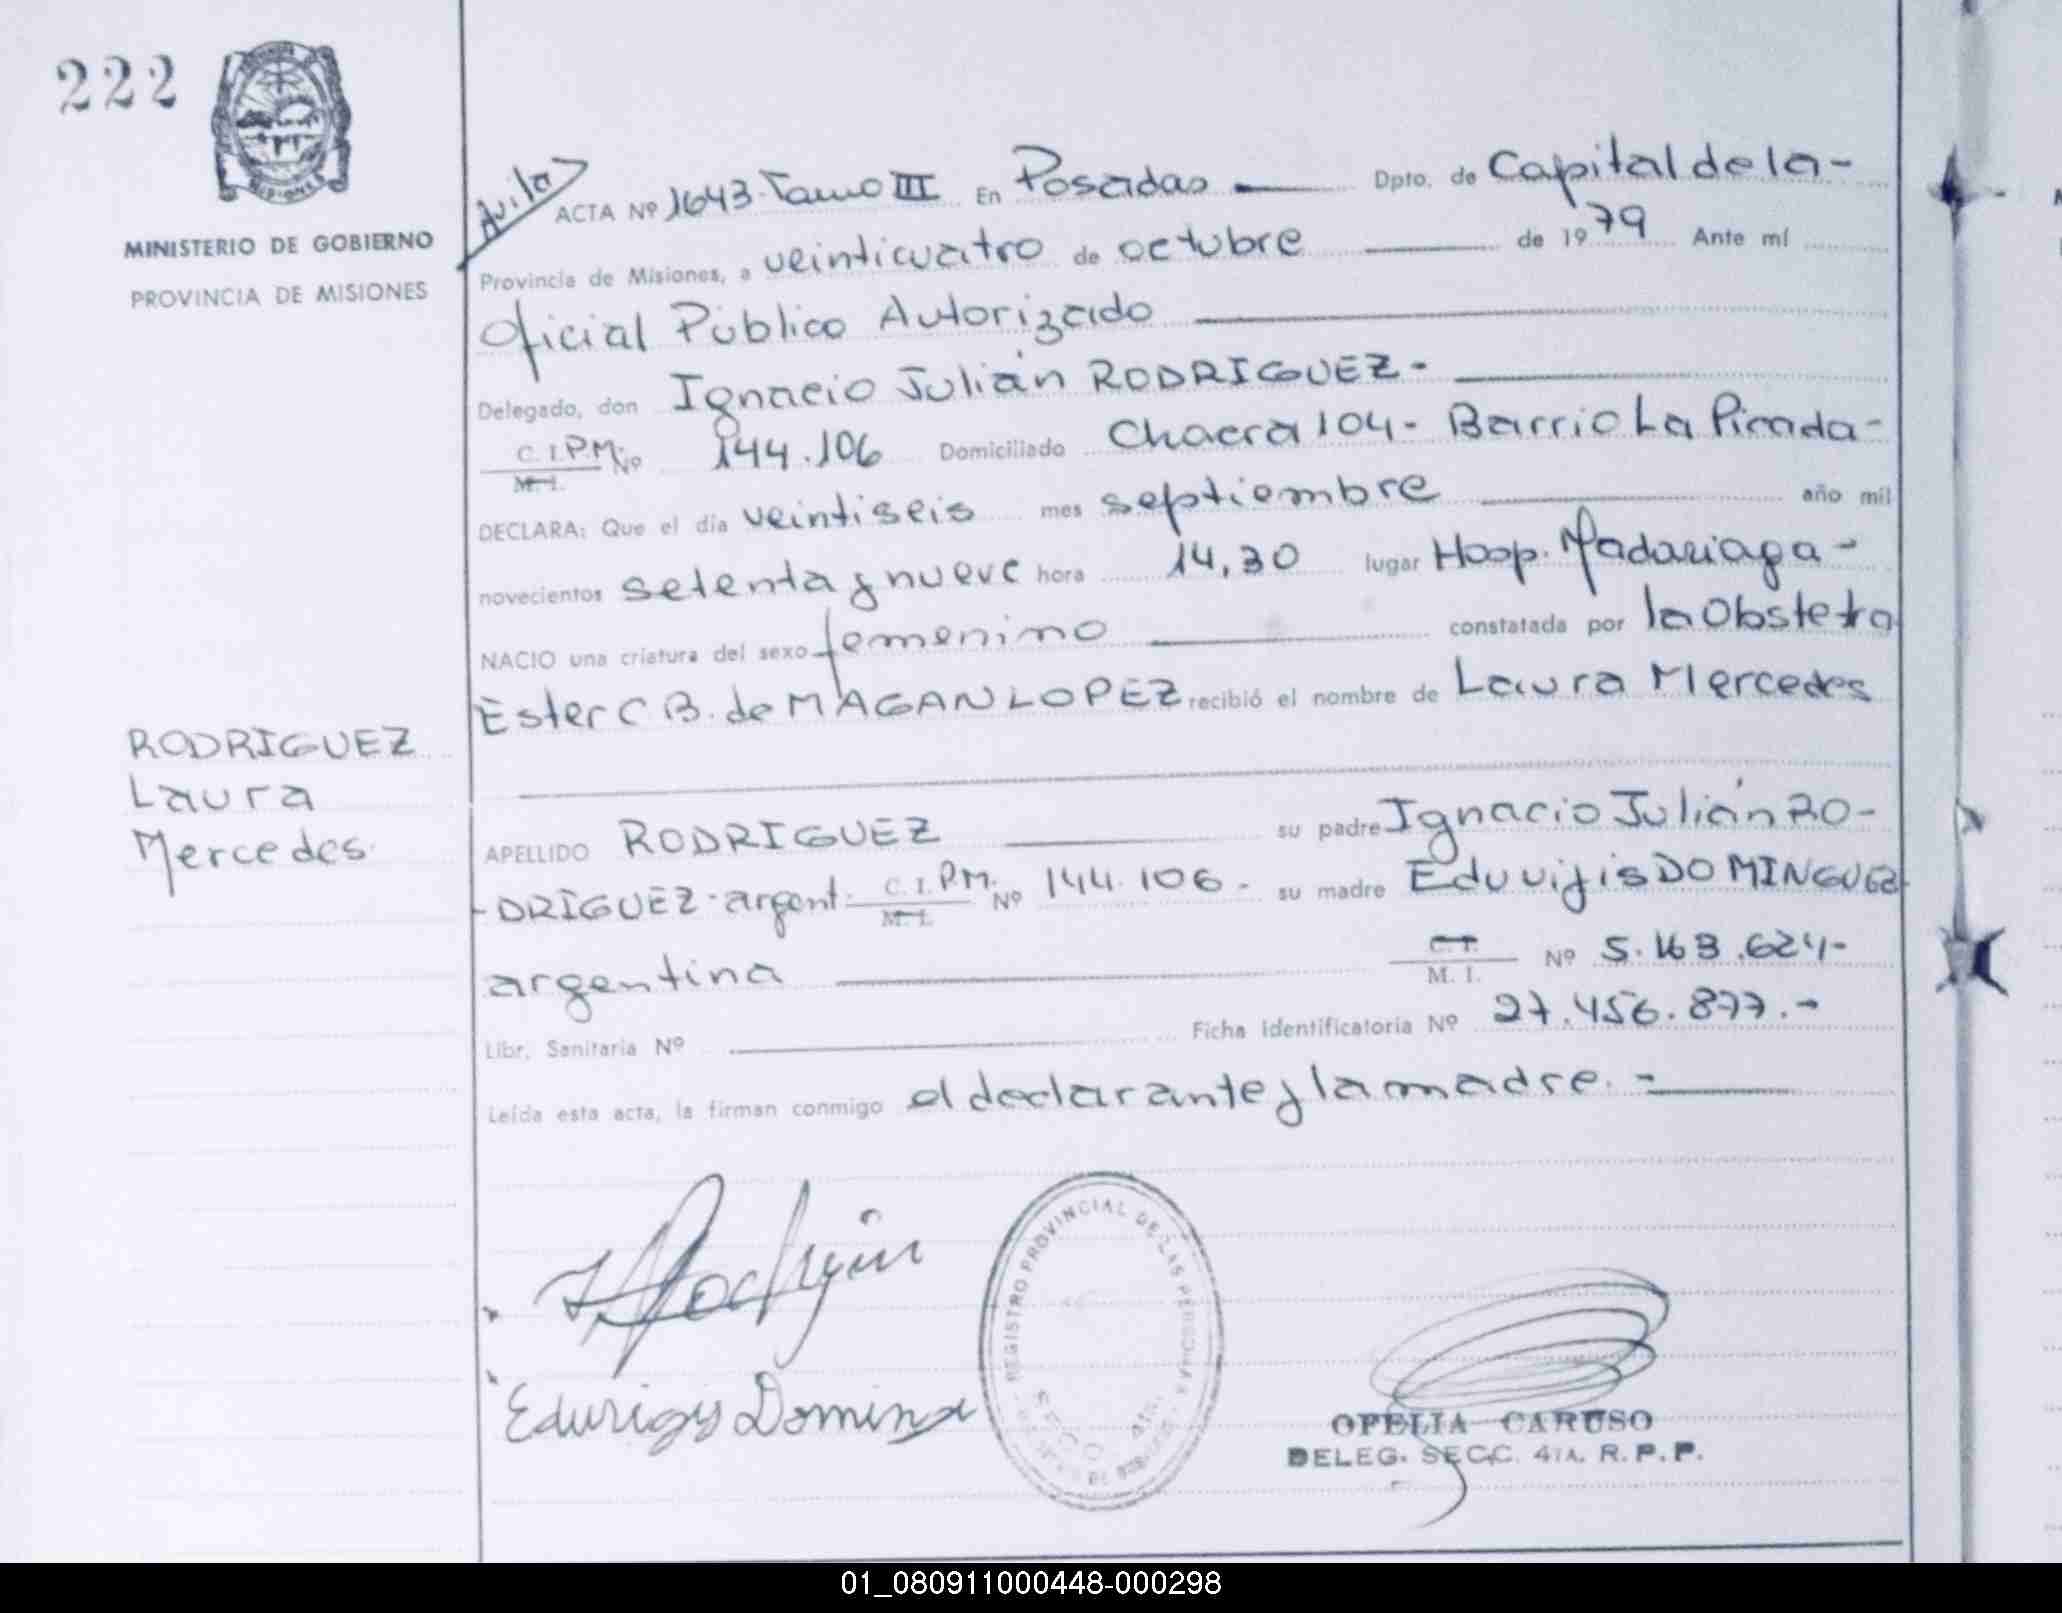 222
MINISTERIO DE GOBIERNO
PROVINCIA DE MISIONES
Avila
ACTA Nº 1643-Tomo III En Posadas Dpto. de Capital de la-
Provincia de Misiones, a veinticuatro de octubre de 1979 Ante mí
Oficial Público Autorizado
Delegado, don Ignacio Julián RODRIGUEZ-
C. I. P.M. Nº 144.106 Domiciliado Chacra 104- Barrio La Picada-
M. I.
DECLARA: Que el día veintiseis mes septiembre año mil
novecientos setenta y nueve hora 14,30 lugar Hosp. Madariaga-
NACIO una criatura del sexo femenino constatada por la Obstetra
Ester C B. de MAGAN LOPEZ recibió el nombre de Laura Mercedes
RODRIGUEZ
Laura
Mercedes
APELLIDO RODRIGUEZ su padre Ignacio Julián RO-
-DRIGUEZ-argent. C. I. P.M. Nº 144.106- su madre Eduvijis DOMINGUEZ
M. I.
argentina C. I. Nº 5.163.624-
M. I.
Libr. Sanitaria Nº Ficha Identificatoria Nº 27.456.877.-
Leída esta acta, la firman conmigo el declarante y la madre.-
REGISTRO PROVINCIAL DE LAS PERSONAS
SECC. 4ta.
OFELIA CARUSO
DELEG. SECC. 4TA. R.P.P.
01_080911000448-000298